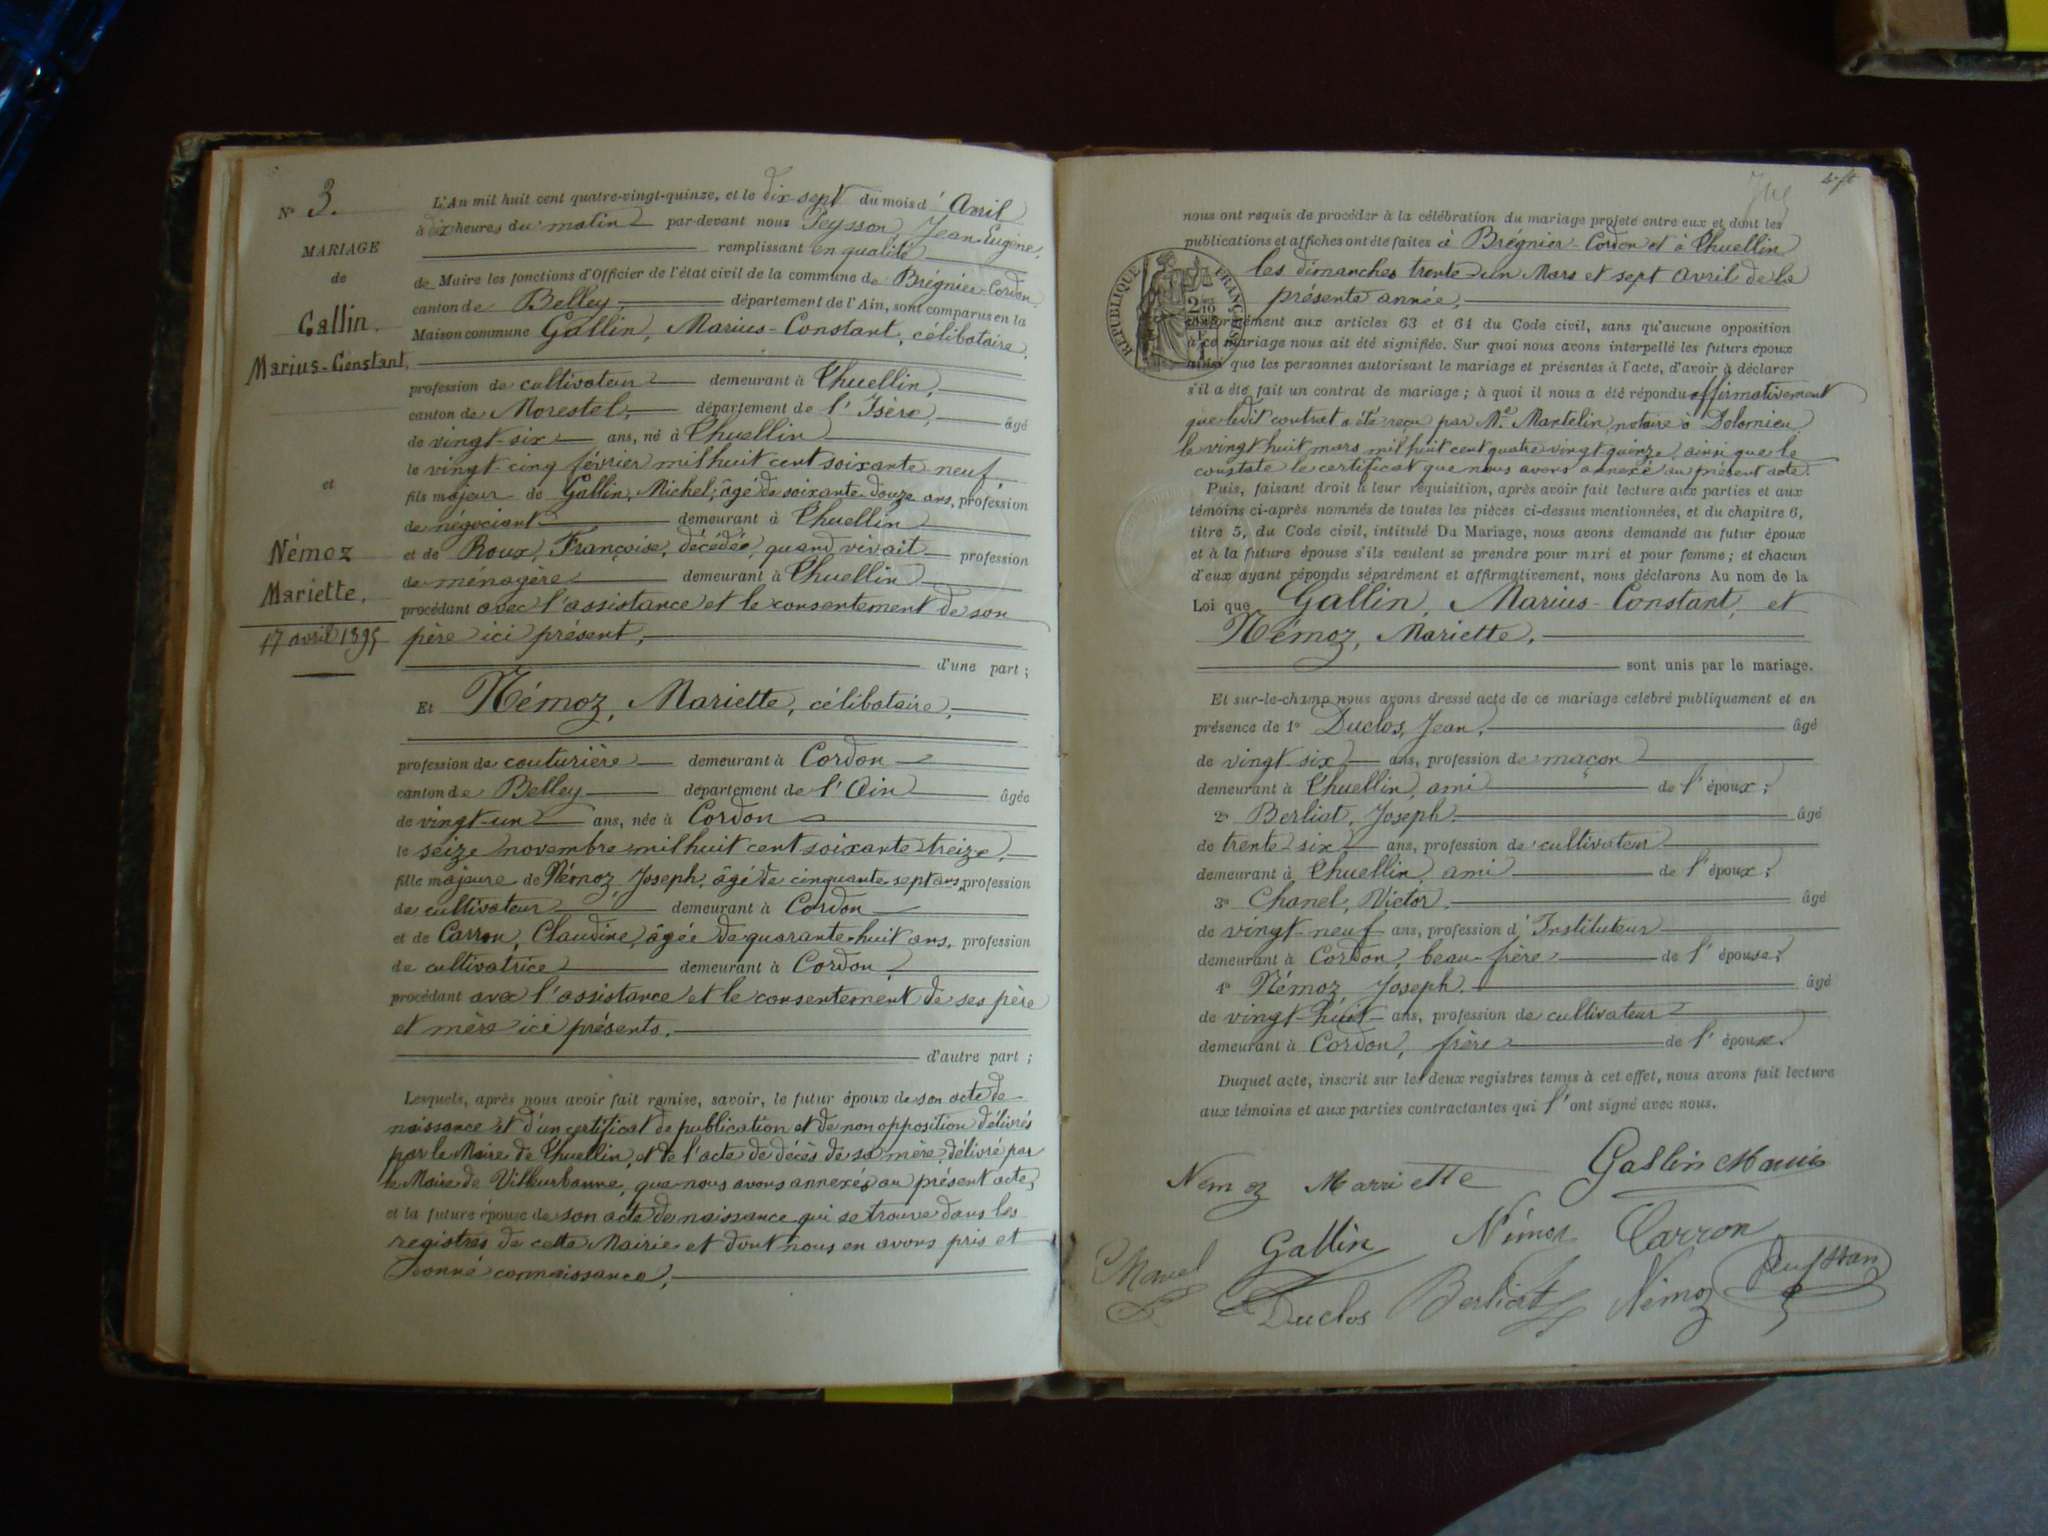 N° 3.
MARIAGE
de
Gallin,
Marius-Constant,
et
Némoz
Mariette,
17 avril 1895
L'An mil huit cent quatre-vingt-quinze, et le dix-sept du mois d'Avril
à dix heures du matin par-devant nous Peysson, Jean-Eugène,
remplissant en qualité
de Maire les fonctions d'Officier de l'état civil de la commune de Brégnier-Cordon
canton de Belley, département de l'Ain, sont comparus en la
Maison commune Gallin, Marius-Constant, célibataire,
profession de cultivateur demeurant à Thuellin,
canton de Morestel, département de l'Isère, âgé
de vingt-six ans, né à Thuellin
le vingt-cinq février mil huit cent soixante-neuf
fils majeur de Gallin, Michel, âgé de soixante-douze ans, profession
de négociant demeurant à Thuellin
et de Roux, Françoise, décédée, quand vivait profession
de ménagère demeurant à Thuellin
procédant avec l'assistance et le consentement de son
père ici présent,
d'une part ;
Et Némoz, Mariette, célibataire,
profession de couturière demeurant à Cordon
canton de Belley département de l'Ain âgée
de vingt-un ans, née à Cordon
le seize novembre mil huit cent soixante-treize,
fille majeure de Némoz, Joseph, âgé de cinquante-sept ans, profession
de cultivateur demeurant à Cordon
et de Carron, Claudine, âgée de quarante-huit ans, profession
de cultivatrice demeurant à Cordon,
procédant avec l'assistance et le consentement de ses père
et mère ici présents.
d'autre part ;
Lesquels, après nous avoir fait remise, savoir, le futur époux de son acte de
naissance et d'un certificat de publication et de non opposition délivrés
par le Maire de Thuellin, et de l'acte de décès de sa mère, délivré par
le Maire de Villeurbanne, que nous avons annexés au présent acte,
et la future épouse de son acte de naissance qui se trouve dans les
registres de cette Mairie et dont nous en avons pris et
donné connaissance,
nous ont requis de procéder à la célébration du mariage projeté entre eux et dont les
publications et affiches ont été faites à Brégnier-Cordon et à Thuellin
les dimanches trente-un Mars et sept avril de la
présente année,
RÉPUBLIQUE FRANÇAISE
conformément aux articles 63 et 64 du Code civil, sans qu'aucune opposition
à ce mariage nous ait été signifiée. Sur quoi nous avons interpellé les futurs époux
ainsi que les personnes autorisant le mariage et présentes à l'acte, d'avoir à déclarer
s'il a été fait un contrat de mariage ; à quoi il nous a été répondu affirmativement
que ledit contrat a été reçu par Me Martelin, notaire à Dolomieu
le vingt huit mars mil huit cent quatre vingt quinze, ainsi que le
constate le certificat que nous avons annexé au présent acte.
Puis, faisant droit à leur réquisition, après avoir fait lecture aux parties et aux
témoins ci-après nommés de toutes les pièces ci-dessus mentionnées, et du chapitre 6,
titre 5, du Code civil, intitulé Du Mariage, nous avons demandé au futur époux
et à la future épouse s'ils veulent se prendre pour mari et pour femme ; et chacun
d'eux ayant répondu séparément et affirmativement, nous déclarons Au nom de la
Loi que Gallin, Marius-Constant, et
Némoz, Mariette,
sont unis par le mariage.
Et sur-le-champ nous avons dressé acte de ce mariage célébré publiquement et en
présence de 1° Duclos, Jean, âgé
de vingt-six ans, profession de maçon
demeurant à Thuellin, ami de l'époux ;
2° Berliat, Joseph. âgé
de trente-six ans, profession de cultivateur
demeurant à Thuellin, ami de l'époux ;
3° Chanel, Victor. âgé
de vingt-neuf ans, profession d'Instituteur
demeurant à Cordon, beau-frère de l'épouse ;
4° Némoz, Joseph. âgé
de vingt-huit ans, profession de cultivateur
demeurant à Cordon, frère de l'épouse.
Duquel acte, inscrit sur les deux registres tenus à cet effet, nous avons fait lecture
aux témoins et aux parties contractantes qui l'ont signé avec nous.
Nemoz Marriette Gallin Marius
Gallin Némoz Carron
Chanel Duclos Berliat Némoz Peysson